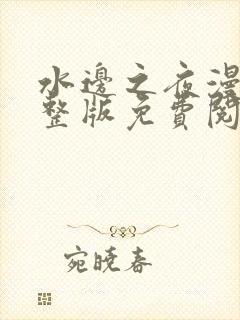 水邊之夜漫
整版免費閱
宛曉春